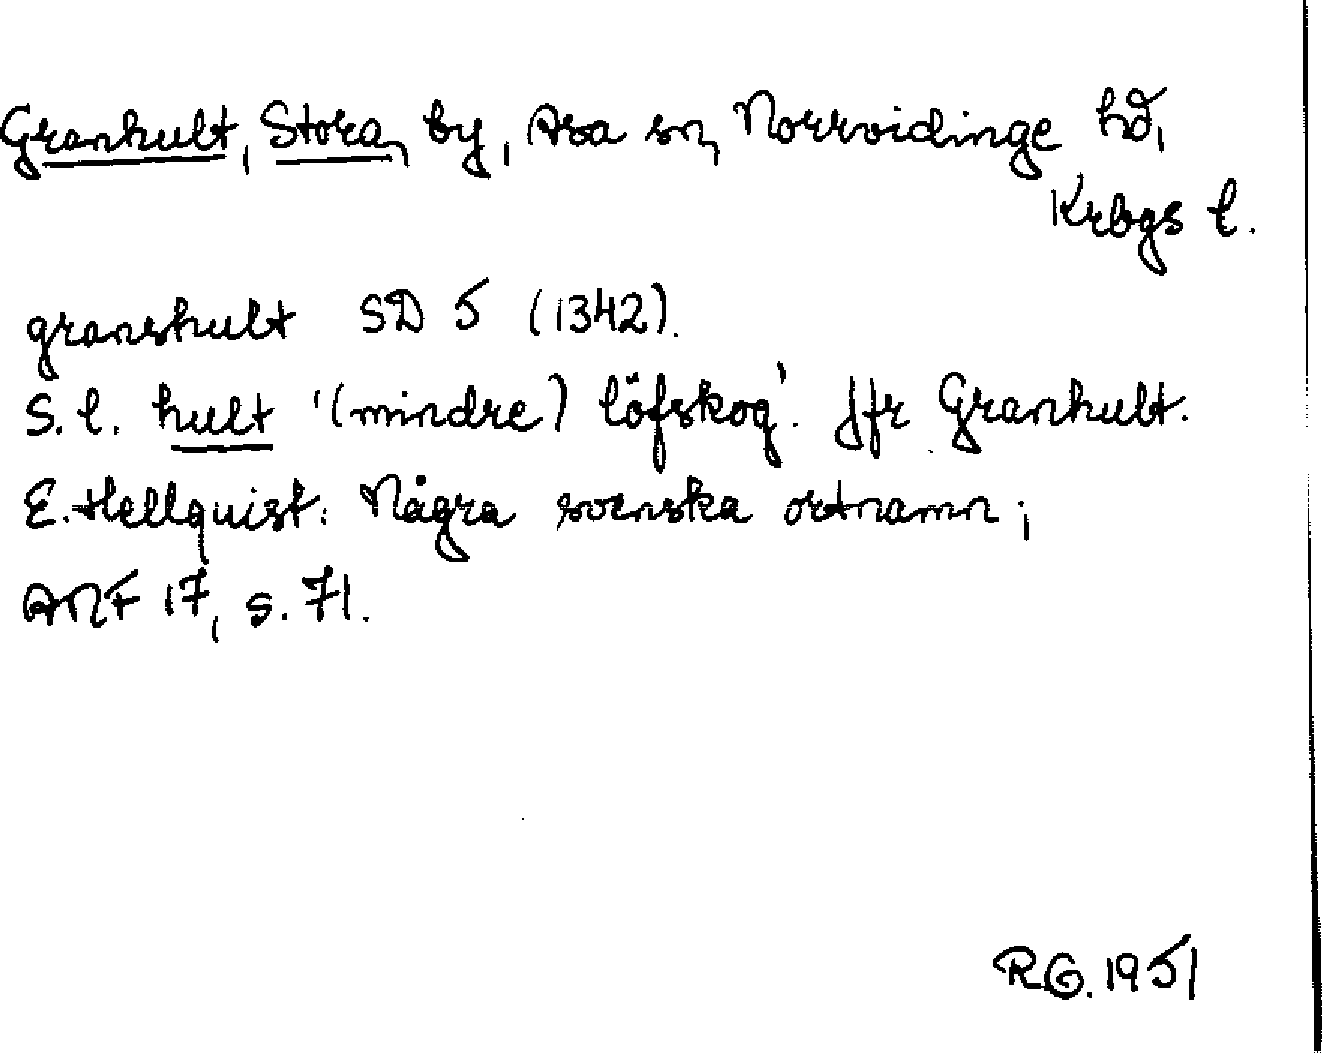 Granhult, Stora, by, Asa sn, Norrvidinge hd,
Krbgs l.
granshult SD 5 (1342).
S. l. hult '(mindre) löfskog'. Jfr Granhult.
E. Hellquist: Några svenska ortnamn;
ANF 17, s. 71.
RG. 1951